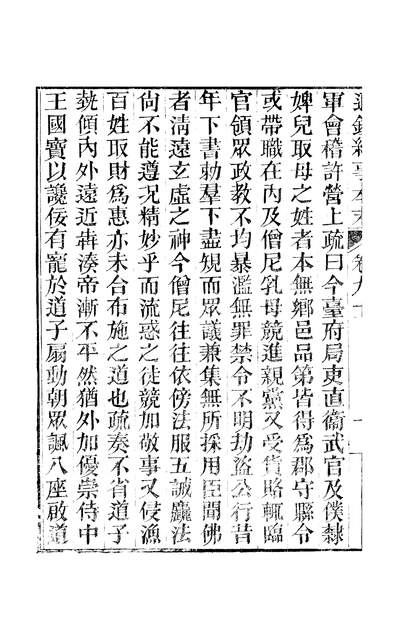 通鑑紀事本末　卷九十　一
軍會稽許營上疏曰今臺府局吏直衞武官及僕隸
婢兒取母之姓者本無鄕邑品第皆得爲郡守縣令
或帶職在內及僧尼乳母競進親黨又受貨賂輒臨
官領眾政教不均暴濫無罪禁令不明劫盜公行昔
年下書勅羣下盡規而眾議兼集無所採用臣聞佛
者淸遠玄虛之神今僧尼往往依傍法服五誡麤法
尙不能遵况精妙乎而流惑之徒競加敬事又侵漁
百姓取財爲惠亦未合布施之道也疏奏不省道子
勢傾內外遠近犇湊帝漸不平然猶外加優崇侍中
王國寶以讒佞有寵於道子扇動朝眾諷八座啟道